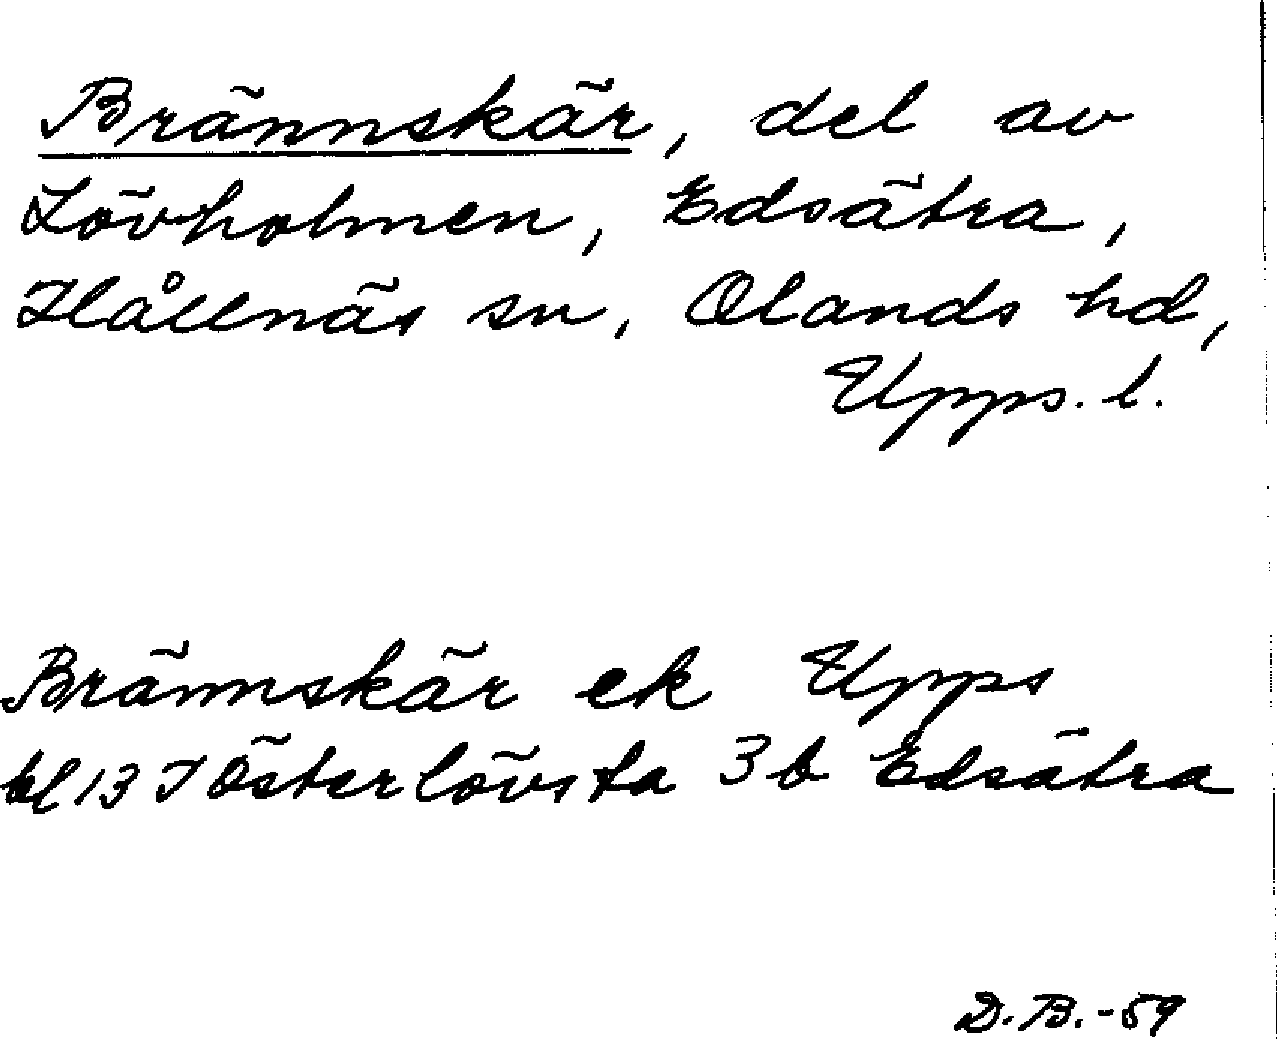 Brännskär, del av
Lövholmen, Edsätra,
Hållnäs sn, Olands hd,
Upps. l.
Brännskär ek Upps
bl 13 I Österlövsta 3b Edsätra
D.B.-59